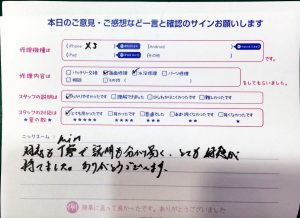 本日のご意見・ご感想など一言と確認のサインお願いします
修理機種は
iPhone XS
Android
iPad
その他
修理内容は
バッテリー交換 画面修理 水没修理 パーツ修理
相談 その他
をしてもらいました。
スタッフの説明は
わかりやすかったです 理解できました 少しわかりにくかったです 難しかったです
スタッフの対応は
星の数★
とても良かったです 良かったです 普通でした あまり良くなかったです 良くなかったです
ニックネーム:
説明も丁寧で 説明も分かり易く、とても好感が
持てました。ありがとうございます。
簡単に直って良かったです。ありがとうございました